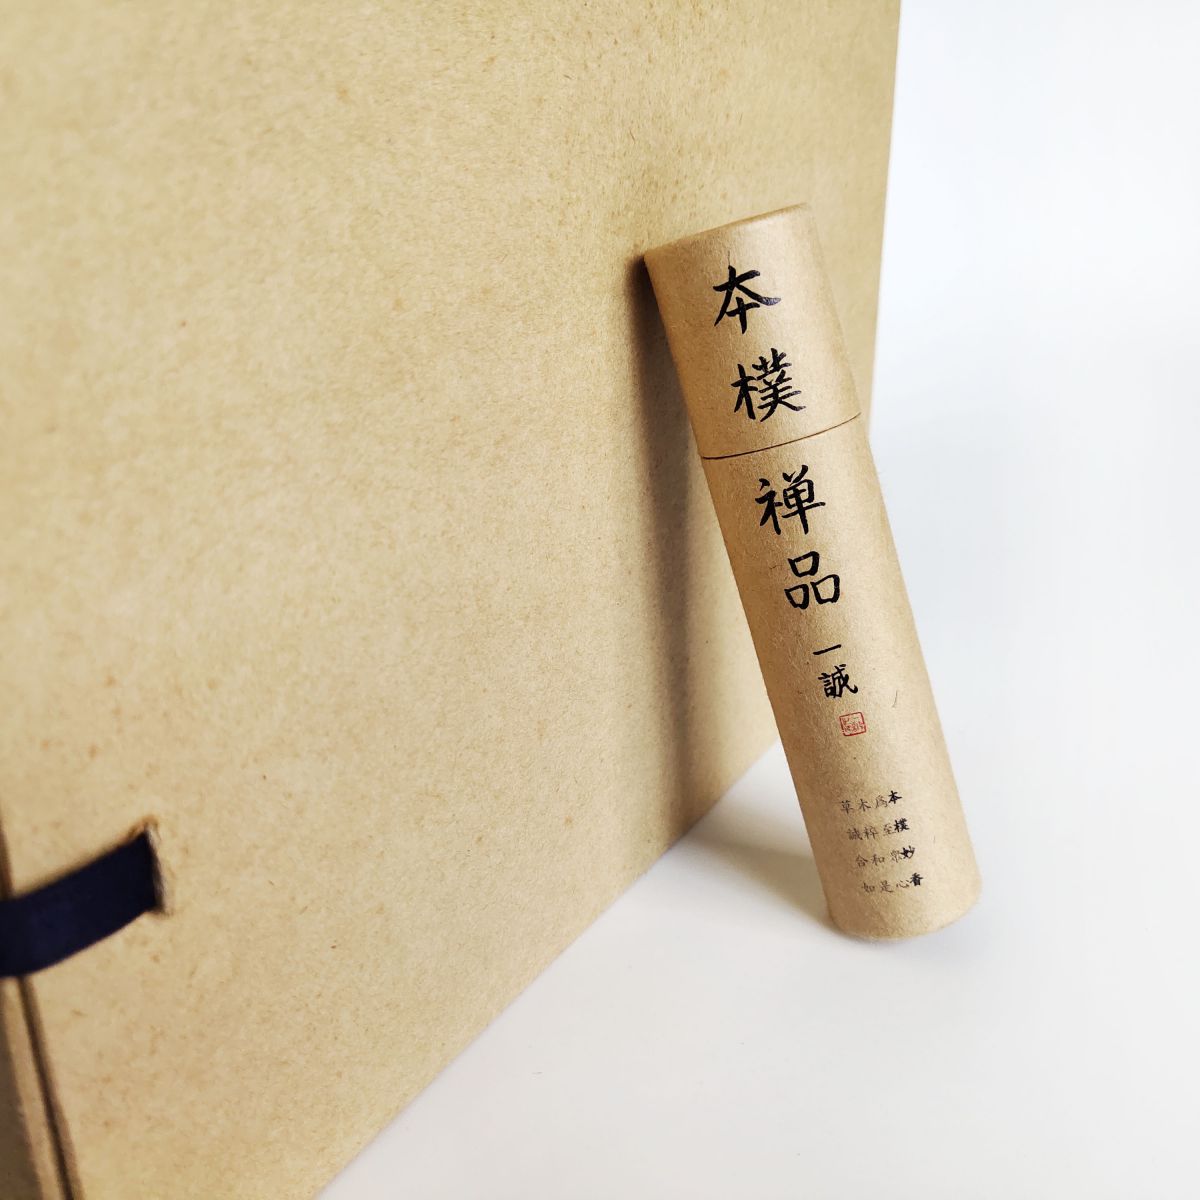 本樸禅品
一誠
草木爲本
誠粹至樸
合和衆妙
如是心香